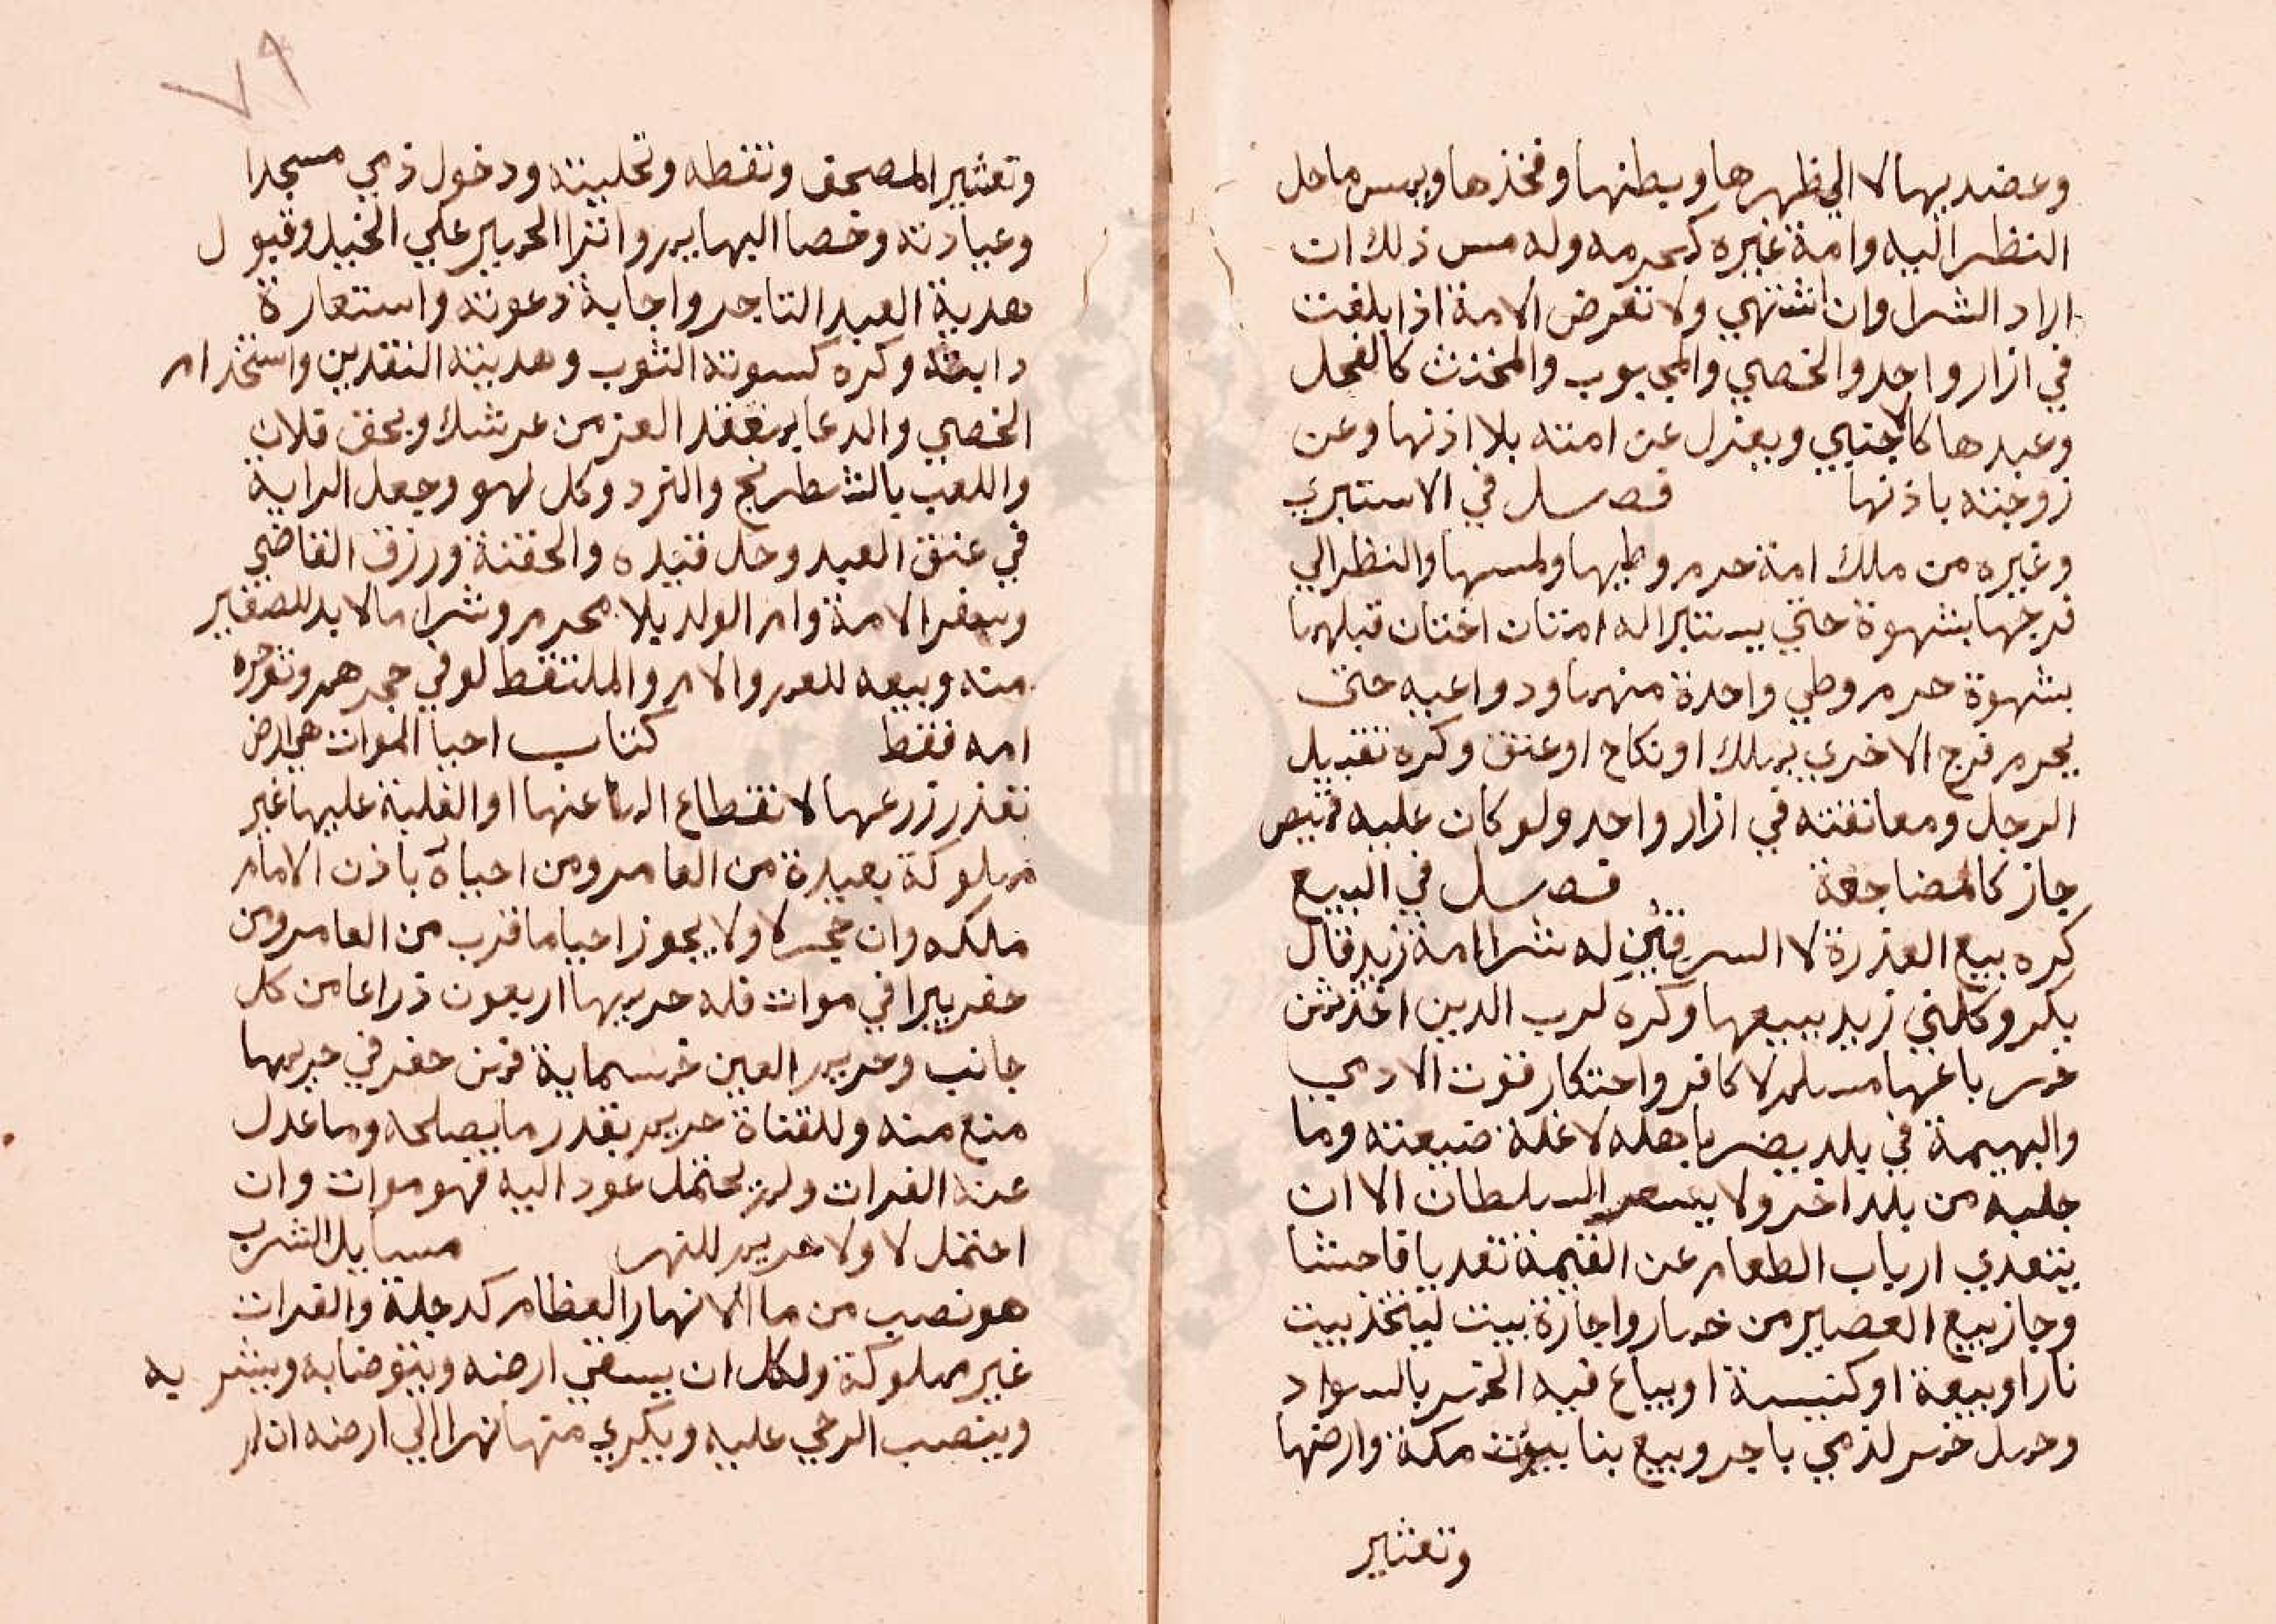 وعضديها لا الي ظهرها وبطنها وفخذها ويمس ماحل
النظر اليه وامة غيره كمحرمه وله مس ذلك ان
اراد الشرا وان اشتهي ولا تعرض الامة اذا بلغت
في ازار واحد والخصي والمجبوب والمخنث كالفحل
وعبدها كالاجنبي ويعزل عن امته بلا اذنها وعن
زوجته باذنها فصل في الاستبري
وغيره من ملك امة حرم وطيها ولمسها والنظر الي
فرجها بشهوة حتي يستبرا له امتان اختان قبلهما
بشهوة حرم وطي واحدة منهما ودواعيه حتي
يحرم فرج الاخري بملك او نكاح او عتق وكره تقبيل
الرجل ومعانقته في ازار واحد ولو كان عليه قميص
جاز كالمضاجعة فصل في البيع
كره بيع العذرة لا السرقين له شرا امة زيد قال
بكر وكلني زيد ببيعها وكره لرب الدين اخذ ثمن
خمر باعها مسلم لا كافر واحتكار قوت الادمي
والبهيمة في بلد يضر باهله لا غلة ضيعته وما
جلبه من بلد اخر ولا يسعر السلطان الا ان
يتعدي ارباب الطعام عن القيمة تعديا فاحشا
وجاز بيع العصير من خمار واجازة بيت ليتخذ بيت
نار او بيعة او كنيسة او يباع فيه الخمر بالسواد
وحمل خمر لذمي باجر وبيع بنا بيوت مكة وارضها
وتعشير
٧٩
وتعشير المصحف ونقطه وتحليته ودخول ذمي مسجدا
وعيادته وخصا البهايم وانزا الحمير علي الخيل وقبول
هدية العبد التاجر واجابة دعوته واستعارة
دابته وكره كسوته الثوب وهديته النقدين واستخدام
الخصي والدعا بمعقد العز من عرشك وبحق فلان
واللعب بالشطرنج والنرد وكل لهو وجعل الراية
في عنق العبد وحل قيده والحقنة ورزق القاضي
وسفر الامة وام الولد بلا محرم وشرا مالا بد للصغير
منه وبيعه للعم والام والملتقط لو في حجرهم وتوجره
امه فقط كتاب احيا الموات هي ارض
تعذر زرعها لانقطاع الما عنها او الغلبة عليها غير
مملوكة بعيدة من العامر ومن احياه باذن الامام
ملكه وان حجر لا ولا يجوز احيا ما قرب من العامر ومن
حفر بيرا في موات فله حريمها اربعون ذراعا من كل
جانب وحريم العين خمسماية فمن حفر في حريمها
منع منه وللقناة حريم بقدر ما يصلحه وما عدل
عنه الفرات ولم يحتمل عود اليه فهو موات وان
احتمل لا ولا حريم للنهر مسايل الشرب
هو نصيب من ما الانهار العظام كدجلة والفرات
غير مملوكة ولكل ان يسقي ارضه ويتوضا به ويشربه
وينصب الرحي عليه ويكري منها نهرا الي ارضه ان لم